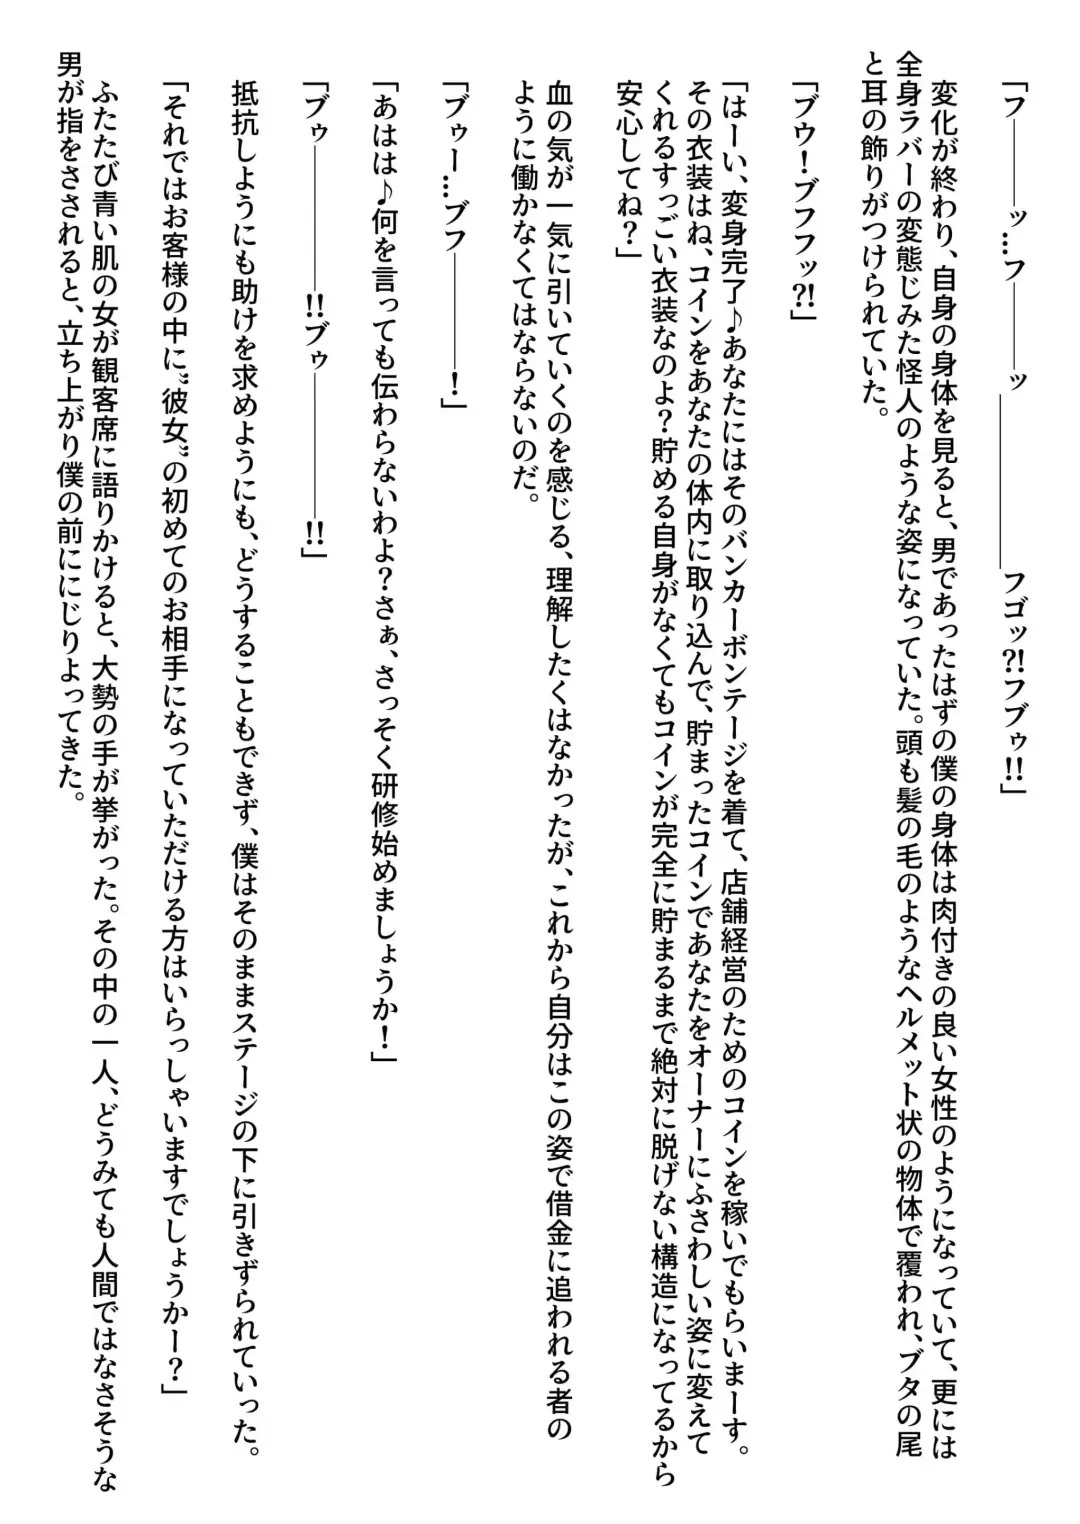 「フ――――ッ…フ――――ッ ――――――フゴッ?!フブゥ!!」
変化が終わり、自身の身体を見ると、男であったはずの僕の身体は肉付きの良い女性のようになっていて、更には
全身ラバーの変態じみた怪人のような姿になっていた。頭も髪の毛のようなヘルメット状の物体で覆われ、ブタの尾
と耳の飾りがつけられていた。
「ブウ！ブフフッ?!」
「はーい、変身完了♪あなたにはそのバンカーボンテージを着て、店舗経営のためのコインを稼いでもらいまーす。
その衣装はね、コインをあなたの体内に取り込んで、貯まったコインであなたをオーナーにふさわしい姿に変えて
くれるすっごい衣装なのよ？貯める自身がなくてもコインが完全に貯まるまで絶対に脱げない構造になってるから
安心してね？」
血の気が一気に引いていくのを感じる、理解したくはなかったが、これから自分はこの姿で借金に追われる者の
ように働かなくてはならないのだ。
「ブゥー…ブフ――――！」
「あはは♪何を言っても伝わらないわよ？さぁ、さっそく研修始めましょうか！」
「ブゥ―――――!!ブゥ―――――!!」
抵抗しようにも助けを求めようにも、どうすることもできず、僕はそのままステージの下に引きずられていった。
「それではお客様の中に〝彼女〟の初めてのお相手になっていただける方はいらっしゃいますでしょうかー？」
ふたたび青い肌の女が観客席に語りかけると、大勢の手が挙がった。その中の一人、どうみても人間ではなさそうな
男が指をさされると、立ち上がり僕の前ににじりよってきた。